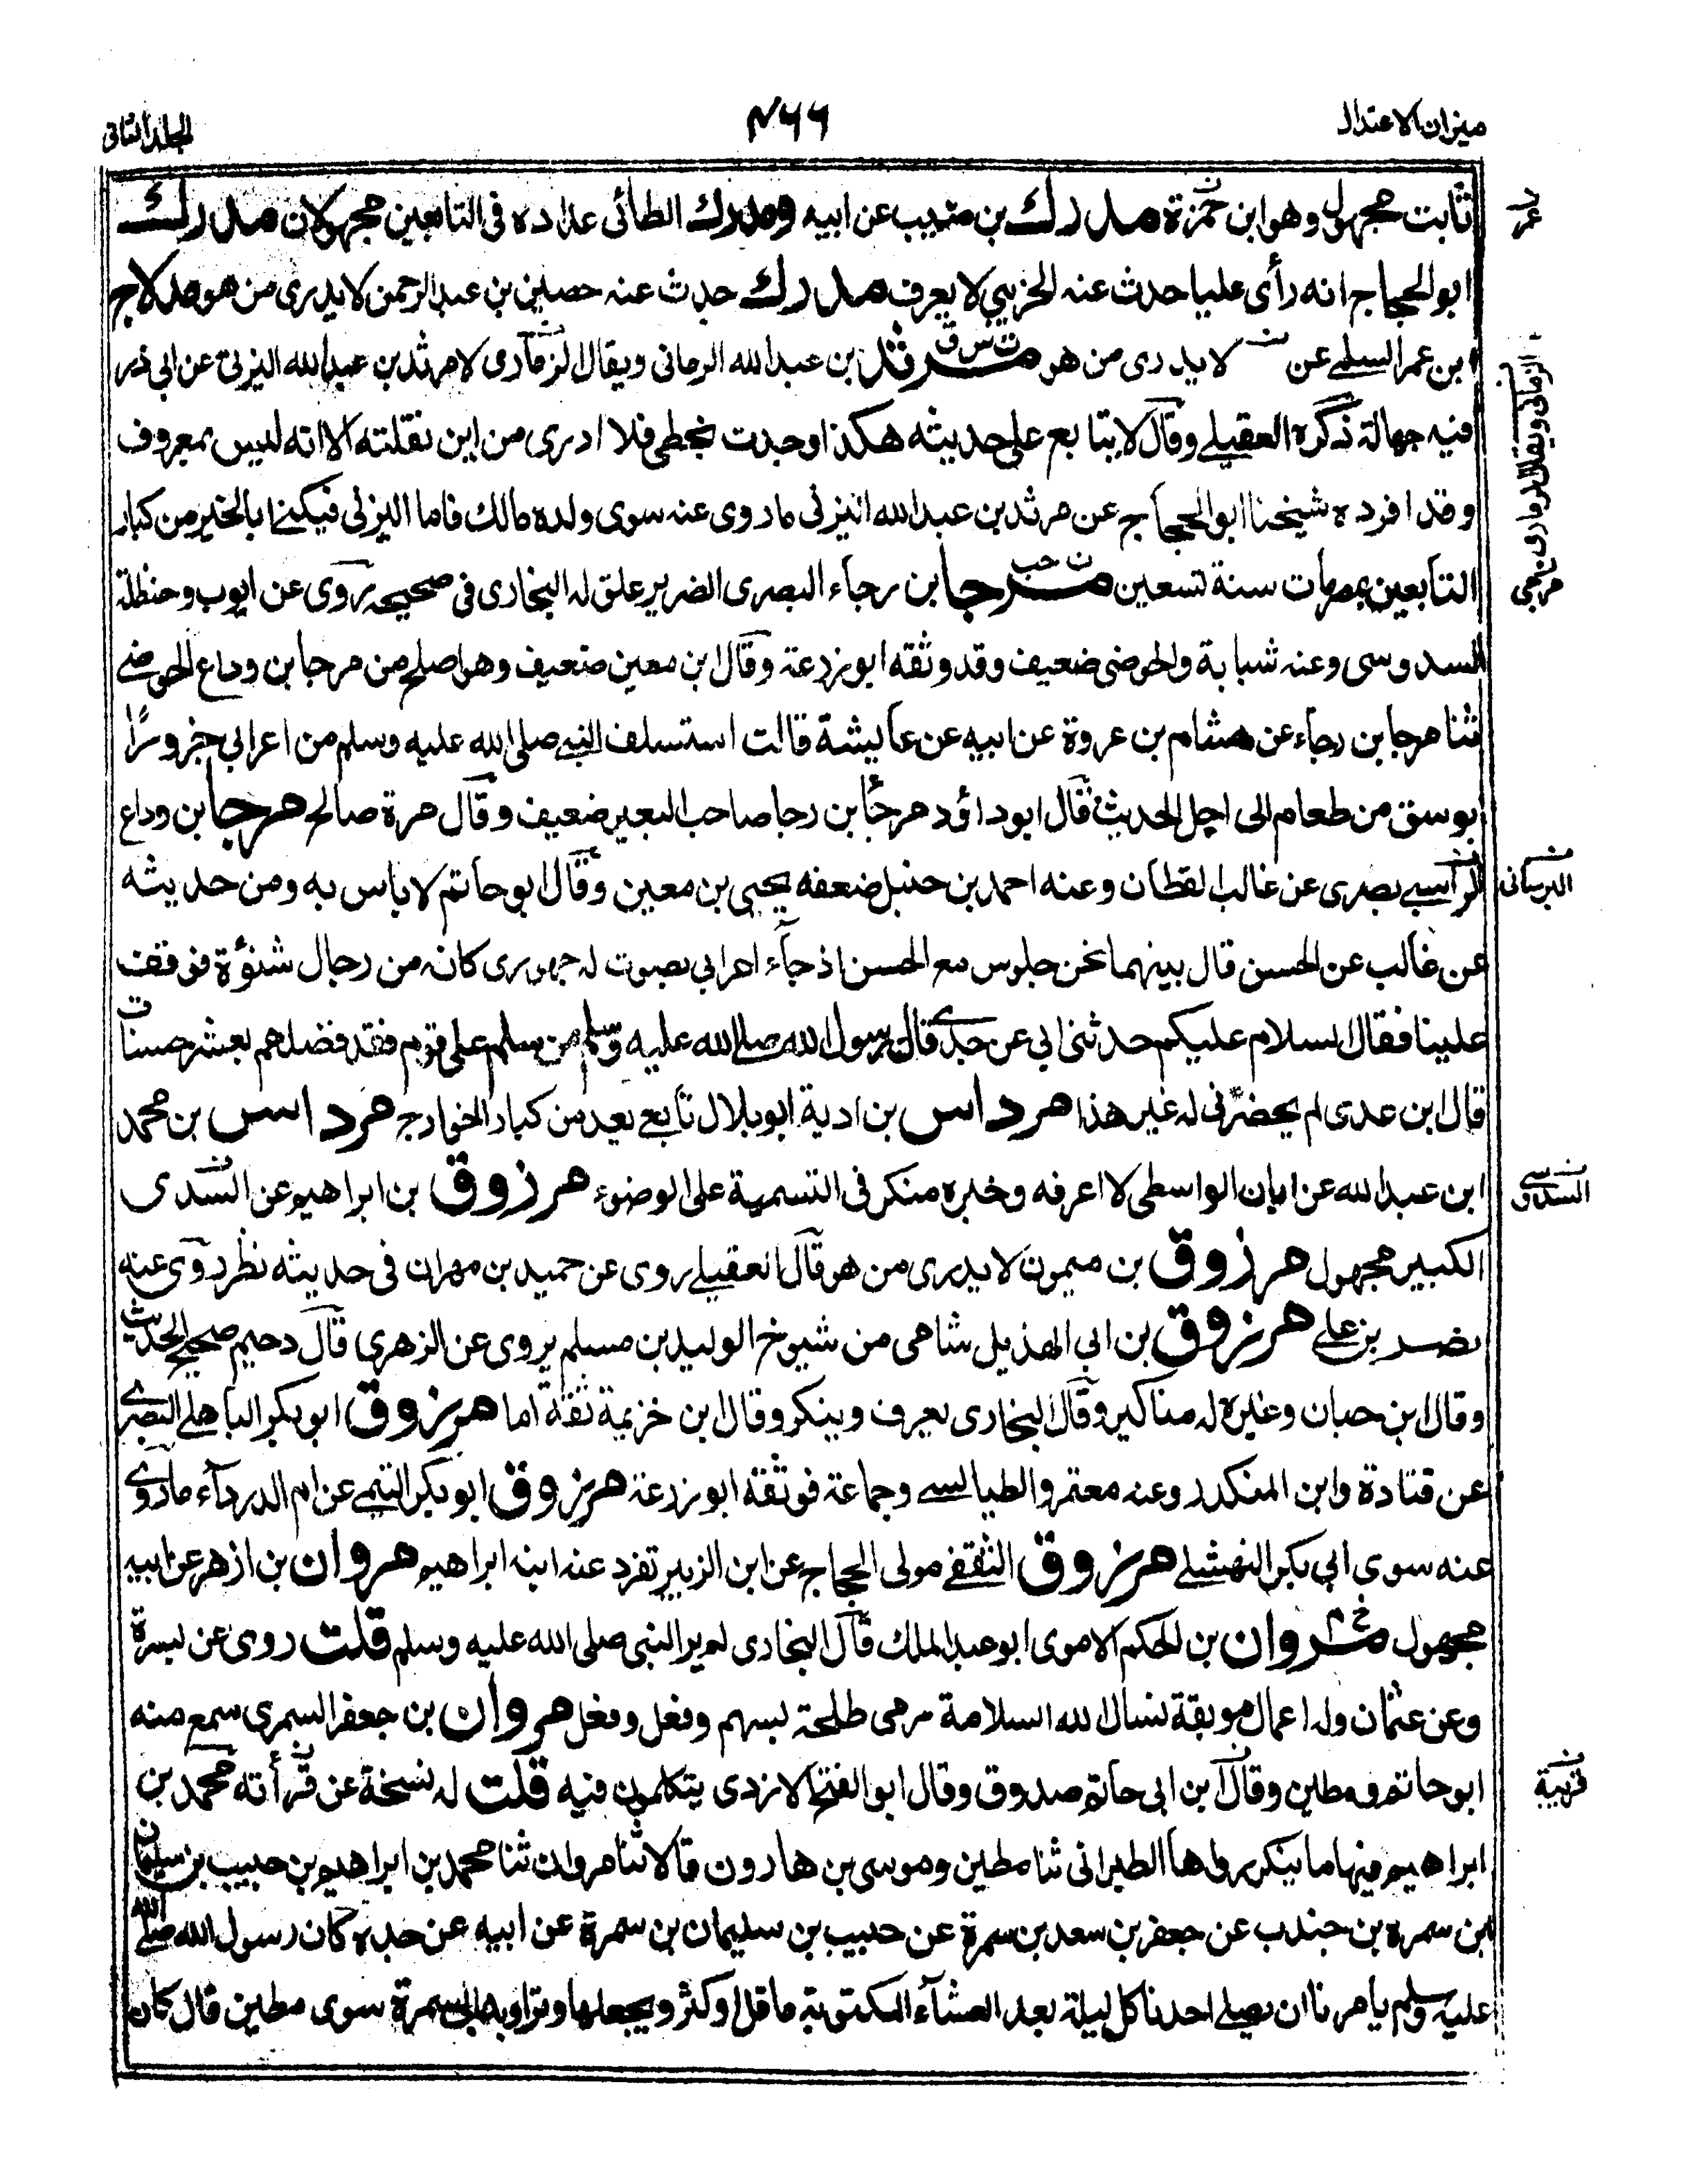 ميزان الاعتدال
٤٦٦
الجلد الثانى
ثابت مجهول وهو ابن حمزة مدرك بن منيب عن ابيه ومدرك الطائى عداده فى التابعين مجهولان مدرك
ابو الحجاج انه رأى عليا حدث عنه الخريبي لا يعرف مدرك حدث عنه حصين بن عبد الرحمن لا يدرى من هو مدلاج
ابن عمر السلمے عن لا يدرى من هو مرثد بن عبد الله الرمانى ويقال الزمارى لا مرثد بن عبد الله اليزنى عن ابى ذر
فيه جهالة ذكره العقيلے وقال لا يتابع على حديثه هكذا وجدت بخطى فلا ادرى من اين نقلته الا انه ليس بمعروف
وقد افرده شيخنا ابو الحجاج عن مرثد بن عبد الله اليزنى ما روى عنه سوى ولده مالك فاما اليزنى فيكنے ابا الخير من كبار
التابعين بمصر مات سنة تسعين مرجا بن رجاء البصرى الضرير علق له البخارى فى صحيحه يروى عن ايوب وحنظلة
السدوسى وعنه شبابة والحوضى ضعيف وقد وثقه ابو زرعة وقال ابن معين ضعيف وهو اصلح من مرجا بن وداع الحوضے
ثنا مرجا بن رجاء عن هشام بن عروة عن ابيه عن عايشة قالت استسلف النبے صلى الله عليه وسلم من اعرابى جزورًا
بوسق من طعام الى اجل الحديث قال ابو داؤد مرجا بن رجا صاحب التعبير ضعيف وقال مرة صالح مرجا بن وداع
الراسبے بصرى عن غالب القطان وعنه احمد بن حنبل ضعفه يحيى بن معين وقال ابو حاتم لا باس به ومن حديثه
عن غالب عن الحسن قال بينهما نحن جلوس مع الحسن اذ جاء اعرابى بصوت له جهورى كانه من رجال شنؤة فوقف
علينا فقال السلام عليكم حدثنى ابى عن جدى قال رسول الله صلے الله عليه وسلم من سلم على قوم فقد فضلهم بعشر حسنات
قال ابن عدى لم يحضرنى له غير هذا مرداس بن ادية ابو بلال تابعے يعد من كبار الخوارج مرداس بن محمد
ابن عبد الله عن ابان الواسطى لا اعرفه وخبره منكر فى التسمية على الوضوء مرزوق بن ابراهيم عن السدى
الكبير مجهول مرزوق بن ميمون لا يدرى من هو قال العقيلے روى عن حميد بن مهران فى حديثه نظر روى عنه
نضر بن علے مرزوق بن ابى الهذيل شامى من شيوخ الوليد بن مسلم يروى عن الزهرى قال دحيم صحيح الحديث
وقال ابن حبان وغيره له مناكير وقال البخارى يعرف وينكر وقال ابن خزيمة ثقة اما مرزوق ابو بكر الباهلے البصرے
عن قتادة وابن المنكدر وعنه معتمر والطيالسے وجماعة فوثقه ابو زرعة مرزوق ابو بكر التيمے عن ام الدرداء ما روى
عنه سوى ابى بكر النهشلے مرزوق الثقفے مولى الحجاج عن ابن الزبير تفرد عنه ابنه ابراهيم مروان بن ازهر عن ابيه
مجهول مروان بن الحكم الاموى ابو عبد الملك قال البخارى لم ير النبى صلى الله عليه وسلم قلت روى عن بسرة
وعن عثمان وله اعمال موبقة نسال الله السلامة رمى طلحة بسهم وفعل وفعل مروان بن جعفر السمرى سمع منه
ابو حاتم ومطين وقال ابن ابى حاتم صدوق وقال ابو الفتح الازدى يتكلمون فيه قلت له نسخة عن قرأته محمد بن
ابراهيم فيها ما ينكر رواها الطبرانى ثنا مطين وموسى بن هارون قالا ثنا مروان ثنا محمد بن ابراهيم بن حبيب بن سليمان
بن سمره بن جندب عن جعفر بن سعد بن سمرة عن حبيب بن سليمان بن سمرة عن ابيه عن جده كان رسول الله صلے الله
عليه وسلم يامرنا ان يصلے احدنا كل ليلة بعد العشاء المكتوبة ما قل او كثر ويجعلها وترا وبه الى سمرة سوى مطين قال كان
الزمانى ويقال الزمارى
البرسانى
السندى
قريبة